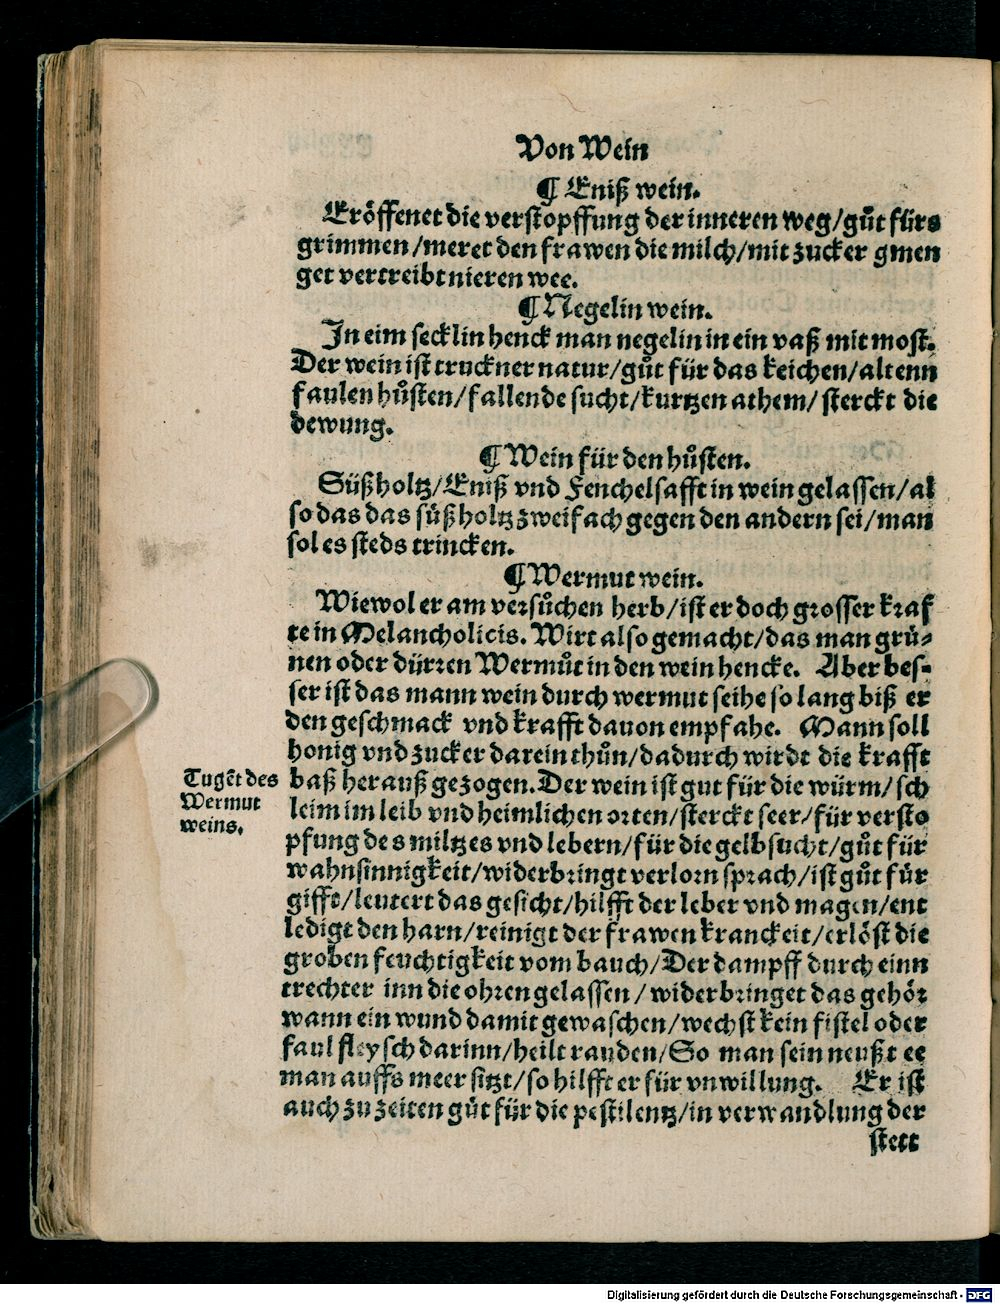 Von Wein
¶ Eniß wein.
Eröffenet die verstopffung der inneren weg/gůt fürs
grimmen/meret den frawen die milch/mit zucker gmen
get vertreibt nieren wee.
¶ Negelin wein.
In eim secklin henck man negelin in ein vaß mit most.
Der wein ist truckner natur/gůt für das keichen/alt enn
faulen hůsten/fallende sucht/kurtzen athem/sterckt die
dewung.
¶ Wein für den hůsten.
Süßholtz/Eniß vnd Fenchelsafft in wein gelassen/al
so das das süßholtz zweifach gegen den andern sei/man
sol es steds trincken.
¶ Wermut wein.
Wiewol er am versůchen herb/ist er doch grosser kraf
te in Melancholicis. Wirt also gemacht/das man grü-
nen oder dürren Wermůt in den wein hencke. Aber bes-
ser ist das mann wein durch wermut seihe so lang biß er
den geschmack vnd krafft dauon empfahe. Mann soll
honig vnd zucker darein thůn/dadurch wirdt die krafft
Tugēt des
Wermut
weins.
baß herauß gezogen. Der wein ist gut für die würm/sch
leim im leib vnd heimlichen orten/sterckt seer/für versto
pfung des miltzes vnd lebern/für die gelbsucht/gůt für
wahnsinnigkeit/widerbringt verlorn sprach/ist gůt für
gifft/leutert das gesicht/hilfft der leber vnd magen/ent
ledigt den harn/reinigt der frawen kranckeit/erlöst die
groben feuchtigkeit vom bauch/Der dampff durch einn
trechter inn die ohren gelassen/widerbringet das gehör
wann ein wund damit gewaschen/wechst kein fistel oder
faul fleysch darinn/heilt rauden/So man sein neußt ee
man auffs meer sitzt/so hilfft er für vnwillung. Er ist
auch zu zeiten gůt für die pestilentz/in verwandlung der
stett
Digitalisierung gefördert durch die Deutsche Forschungsgemeinschaft - DFG